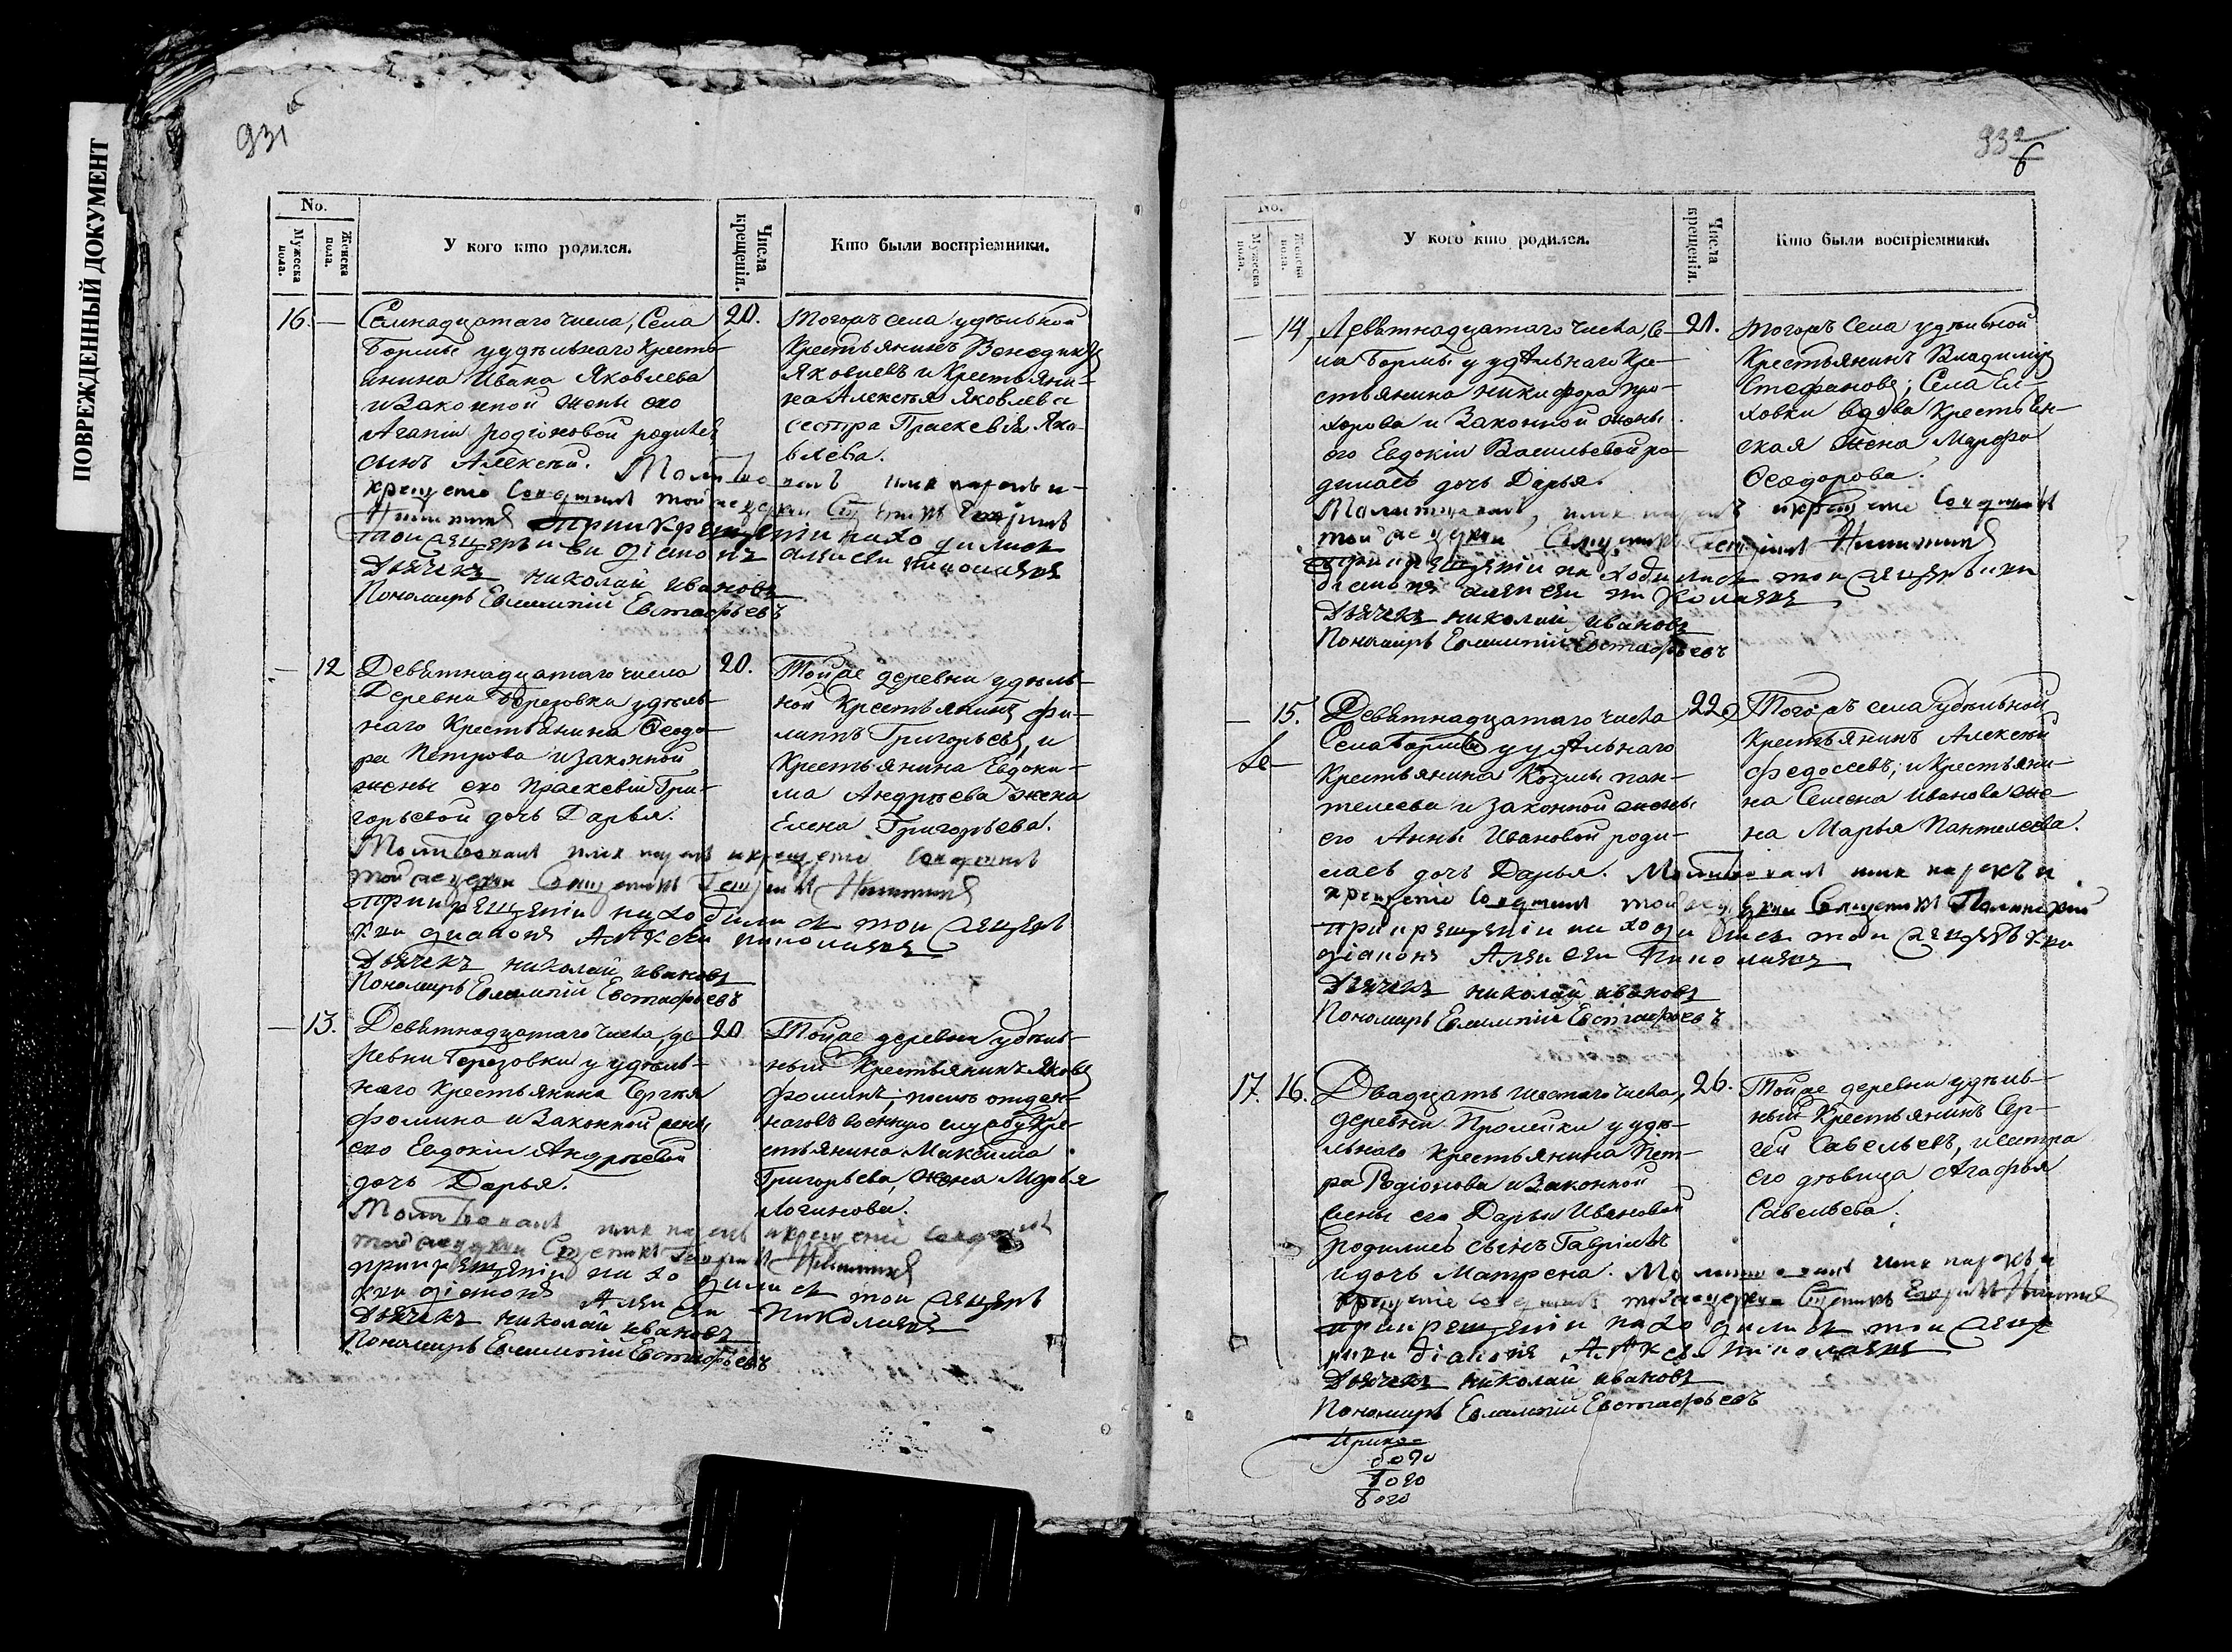 ПОВРЕЖДЕННЫЙ ДОКУМЕНТ
931
No.
Мужеска пола.
Женска пола.
У кого кто родился.
Числа крещенія.
Кто были воспріемники.
16. — 
Семнадцатаго числа, Села
Бормы у удѣльнаго кресть-
янина Ивана Яковлева
и законной жены его
Агапіи Родіоновой родился
сынъ Алексѣй. Молитвовалъ имя нарекъ и
крещеніе совершилъ тойже церкви
при крещеніи находились
тойже церкви діаконъ
Дьячекъ Николай Ивановъ
Пономарь Евлампій Евстафьевъ
20.
Тогожъ села удѣльной
крестьянинъ Венедиктъ
Яковлевъ и крестьяни-
на Алексѣя Яковлева
сестра Праскевія Яко-
влева.
— 12
Девятнадцатаго числа
Деревни Березовки удѣль-
наго крестьянина Ѳеодо-
ра Петрова и законной
жены его Праскевіи Гри-
горьевой дочь Дарья.
Молитвовалъ имя нарекъ и крещеніе совершилъ
тойже церкви
при крещеніи находились тойже церкви
діаконъ Алексѣй
Дьячекъ Николай Ивановъ
Пономарь Евлампій Евстафьевъ
20.
Тойже деревни удѣль-
ной крестьянинъ Фи-
липпъ Григорьевъ, и
крестьянина Евдоки-
ма Андрѣева жена
Елена Григорьева.
— 13.
Девятнадцатаго числа, де-
ревни Березовки у удѣль-
наго крестьянина Сергѣя
Фомина и законной жены
его Евдокіи Андрѣевой
дочь Дарья.
Молитвовалъ имя нарекъ и крещеніе совершилъ
тойже церкви
при крещеніи находились тойже церкви
діаконъ Алексѣй
Дьячекъ Николай Ивановъ
Пономарь Евлампій Евстафьевъ
20
Тойже деревни удѣль-
ный крестьянинъ Яковъ
Фоминъ; отдан-
наго въ военную службу кре-
стьянина Максима
Григорьева, жена Марья
Логинова.
932
6
No.
Мужеска пола.
Женска пола.
У кого кто родился.
Числа крещенія.
Кто были воспріемники.
— 14,
Девятнадцатаго числа, Се-
ла Бормы у удѣльнаго кре-
стьянина Никифора Про-
хорова и законной жены
его Евдокіи Васильевой ро-
дилась дочь Дарья.
Молитвовалъ, имя нарекъ и крещеніе совершилъ
тойже церкви
при крещеніи находились тойже церкви
діаконъ Алексѣй
Дьячекъ Николай Ивановъ
Пономарь Евлампій Евстафьевъ
21.
Тогожъ села удѣльной
крестьянинъ Владимиръ
Стефановъ; Села Ел-
ховки вдова крестьян-
ская жена Марфа
Ѳеодорова.
— 15.
Девятнадцатаго числа
Села Бормы у удѣльнаго
крестьянина Козмы Пан-
телеева и законной жены
его Анны Ивановой роди-
лась дочь Дарья. Молитвовалъ имя нарекъ и
крещеніе совершилъ тойже церкви
при крещеніи находились тойже церкви
діаконъ Алексѣй
Дьячекъ Николай Ивановъ
Пономарь Евлампій Евстафьевъ
22
Тогожъ села удѣльной
крестьянинъ Алексѣй
Федосеевъ; и крестьяни-
на Семена Иванова же-
на Марья Пантелеева.
17. 16.
Двадцать шестаго числа,
деревни Пролейки у удѣ-
льнаго крестьянина Пет-
ра Родіонова и законной
жены его Дарьи Ивановой
родились сынъ Гавріилъ
и дочь Матрена. Молитвовалъ имя нарекъ и
крещеніе совершилъ тойже церкви
при крещеніи находились тойже
церкви діаконъ Алексѣй
Дьячекъ Николай Ивановъ
Пономарь Евлампій Евстафьевъ
26.
Тойже деревни удѣль-
ный крестьянинъ Сер-
гей Савельевъ, и сестра
его дѣвица Агафья
Савельева.